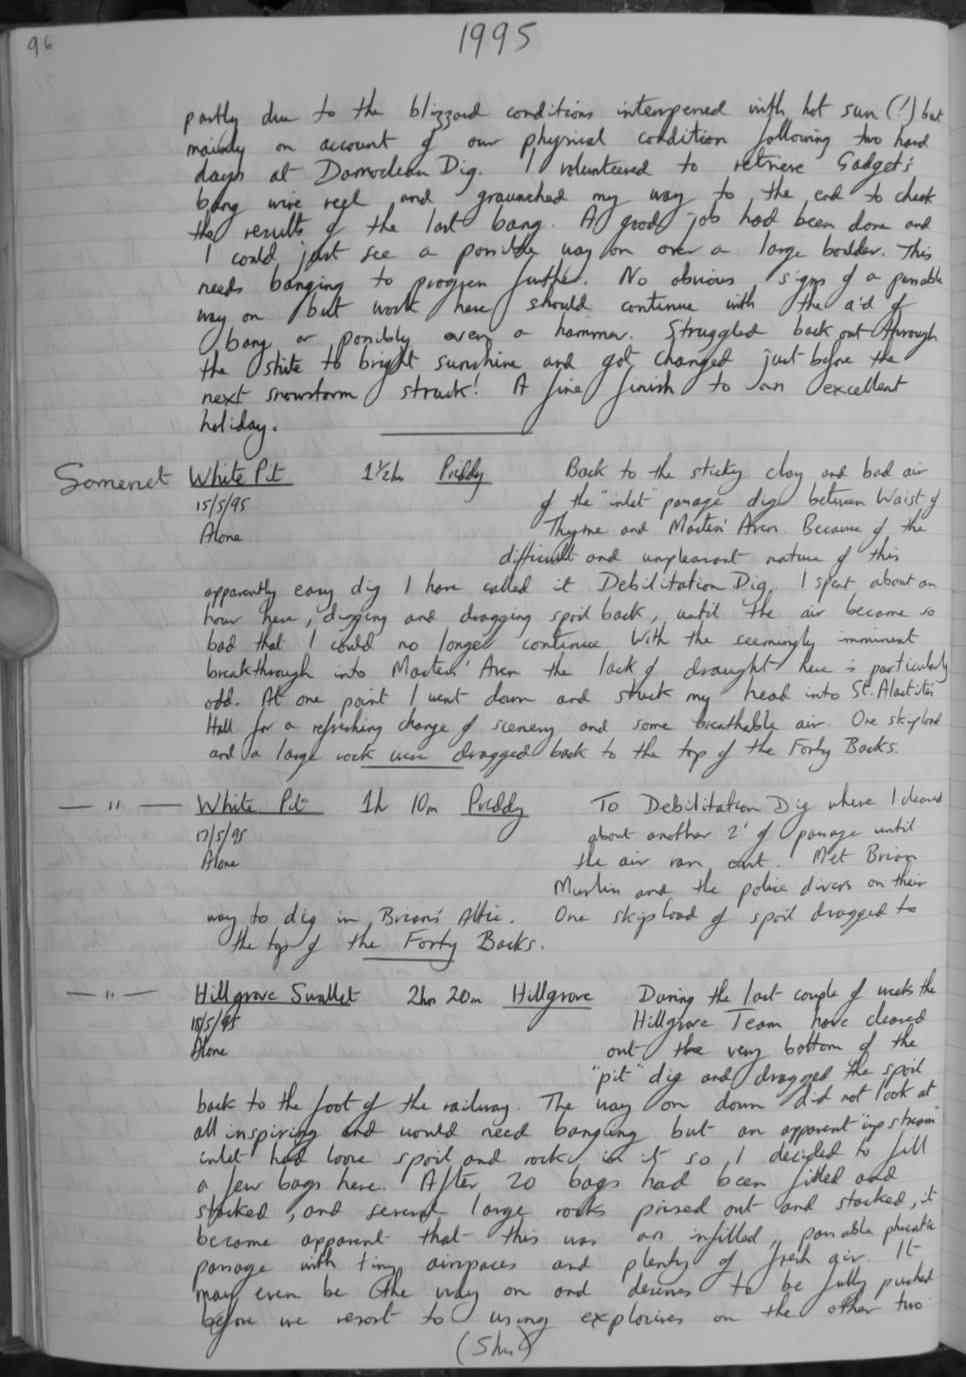 96
1995
partly due to the blizzard conditions interspersed with hot sun (!) but
mainly on account of our physical condition following two hard
days at Damoclean Dig. I volunteered to retrieve Gadget's
bang wire reel and graunched my way to the end to check
the results of the last bang. A good job had been done and
I could just see a possible way on over a large boulder. This
needs banging to progress further. No obvious signs of a passable
way on but work here should continue with the aid of
bang or possibly even a hammer. Struggled back out through
the shite to bright sunshine and got changed just before the
next snowstorm struck! A fine finish to an excellent
holiday.
Somerset White Pit 1½hr Priddy Back to the sticky clay and bad air
15/5/95 of the "inlet" passage dig between Waist of
Alone Thyme and Masters' Aven. Because of the
difficult and unpleasant nature of this
apparently easy dig I have called it Debilitation Dig. I spent about an
hour here, digging and dragging spoil back, until the air became so
bad that I could no longer continue. With the seemingly imminent
breakthrough into Masters' Aven the lack of draught here is particularly
odd. At one point I went down and stuck my head into St. Alactites'
Hall for a refreshing change of scenery and some breathable air. One skipload
and a large rock were dragged back to the top of the Forty Backs.
— " — White Pit 1h 10m Priddy To Debilitation Dig where I cleared
17/5/95 about another 2' of passage until
Alone the air ran out. Met Brian
Murlin and the police divers on their
way to dig in Brian's Attic. One skipload of spoil dragged to
the top of the Forty Backs.
— " — Hillgrove Swallet 2hrs 20m Hillgrove During the last couple of weeks the
18/5/95 Hillgrove Team have cleared
Alone out the very bottom of the
"pit" dig and dragged the spoil
back to the foot of the railway. The way on down did not look at
all inspiring and would need banging but an apparent "upstream"
inlet had loose spoil and rocks in it so I decided to fill
a few bags here. After 20 bags had been filled and
stacked, and several large rocks prised out and stacked, it
became apparent that this was an infilled, passable phreatic
passage with tiny airspaces and plenty of fresh air. It
may even be the way on and deserves to be fully pushed
before we resort to using explosives on the other two.
(5hrs)